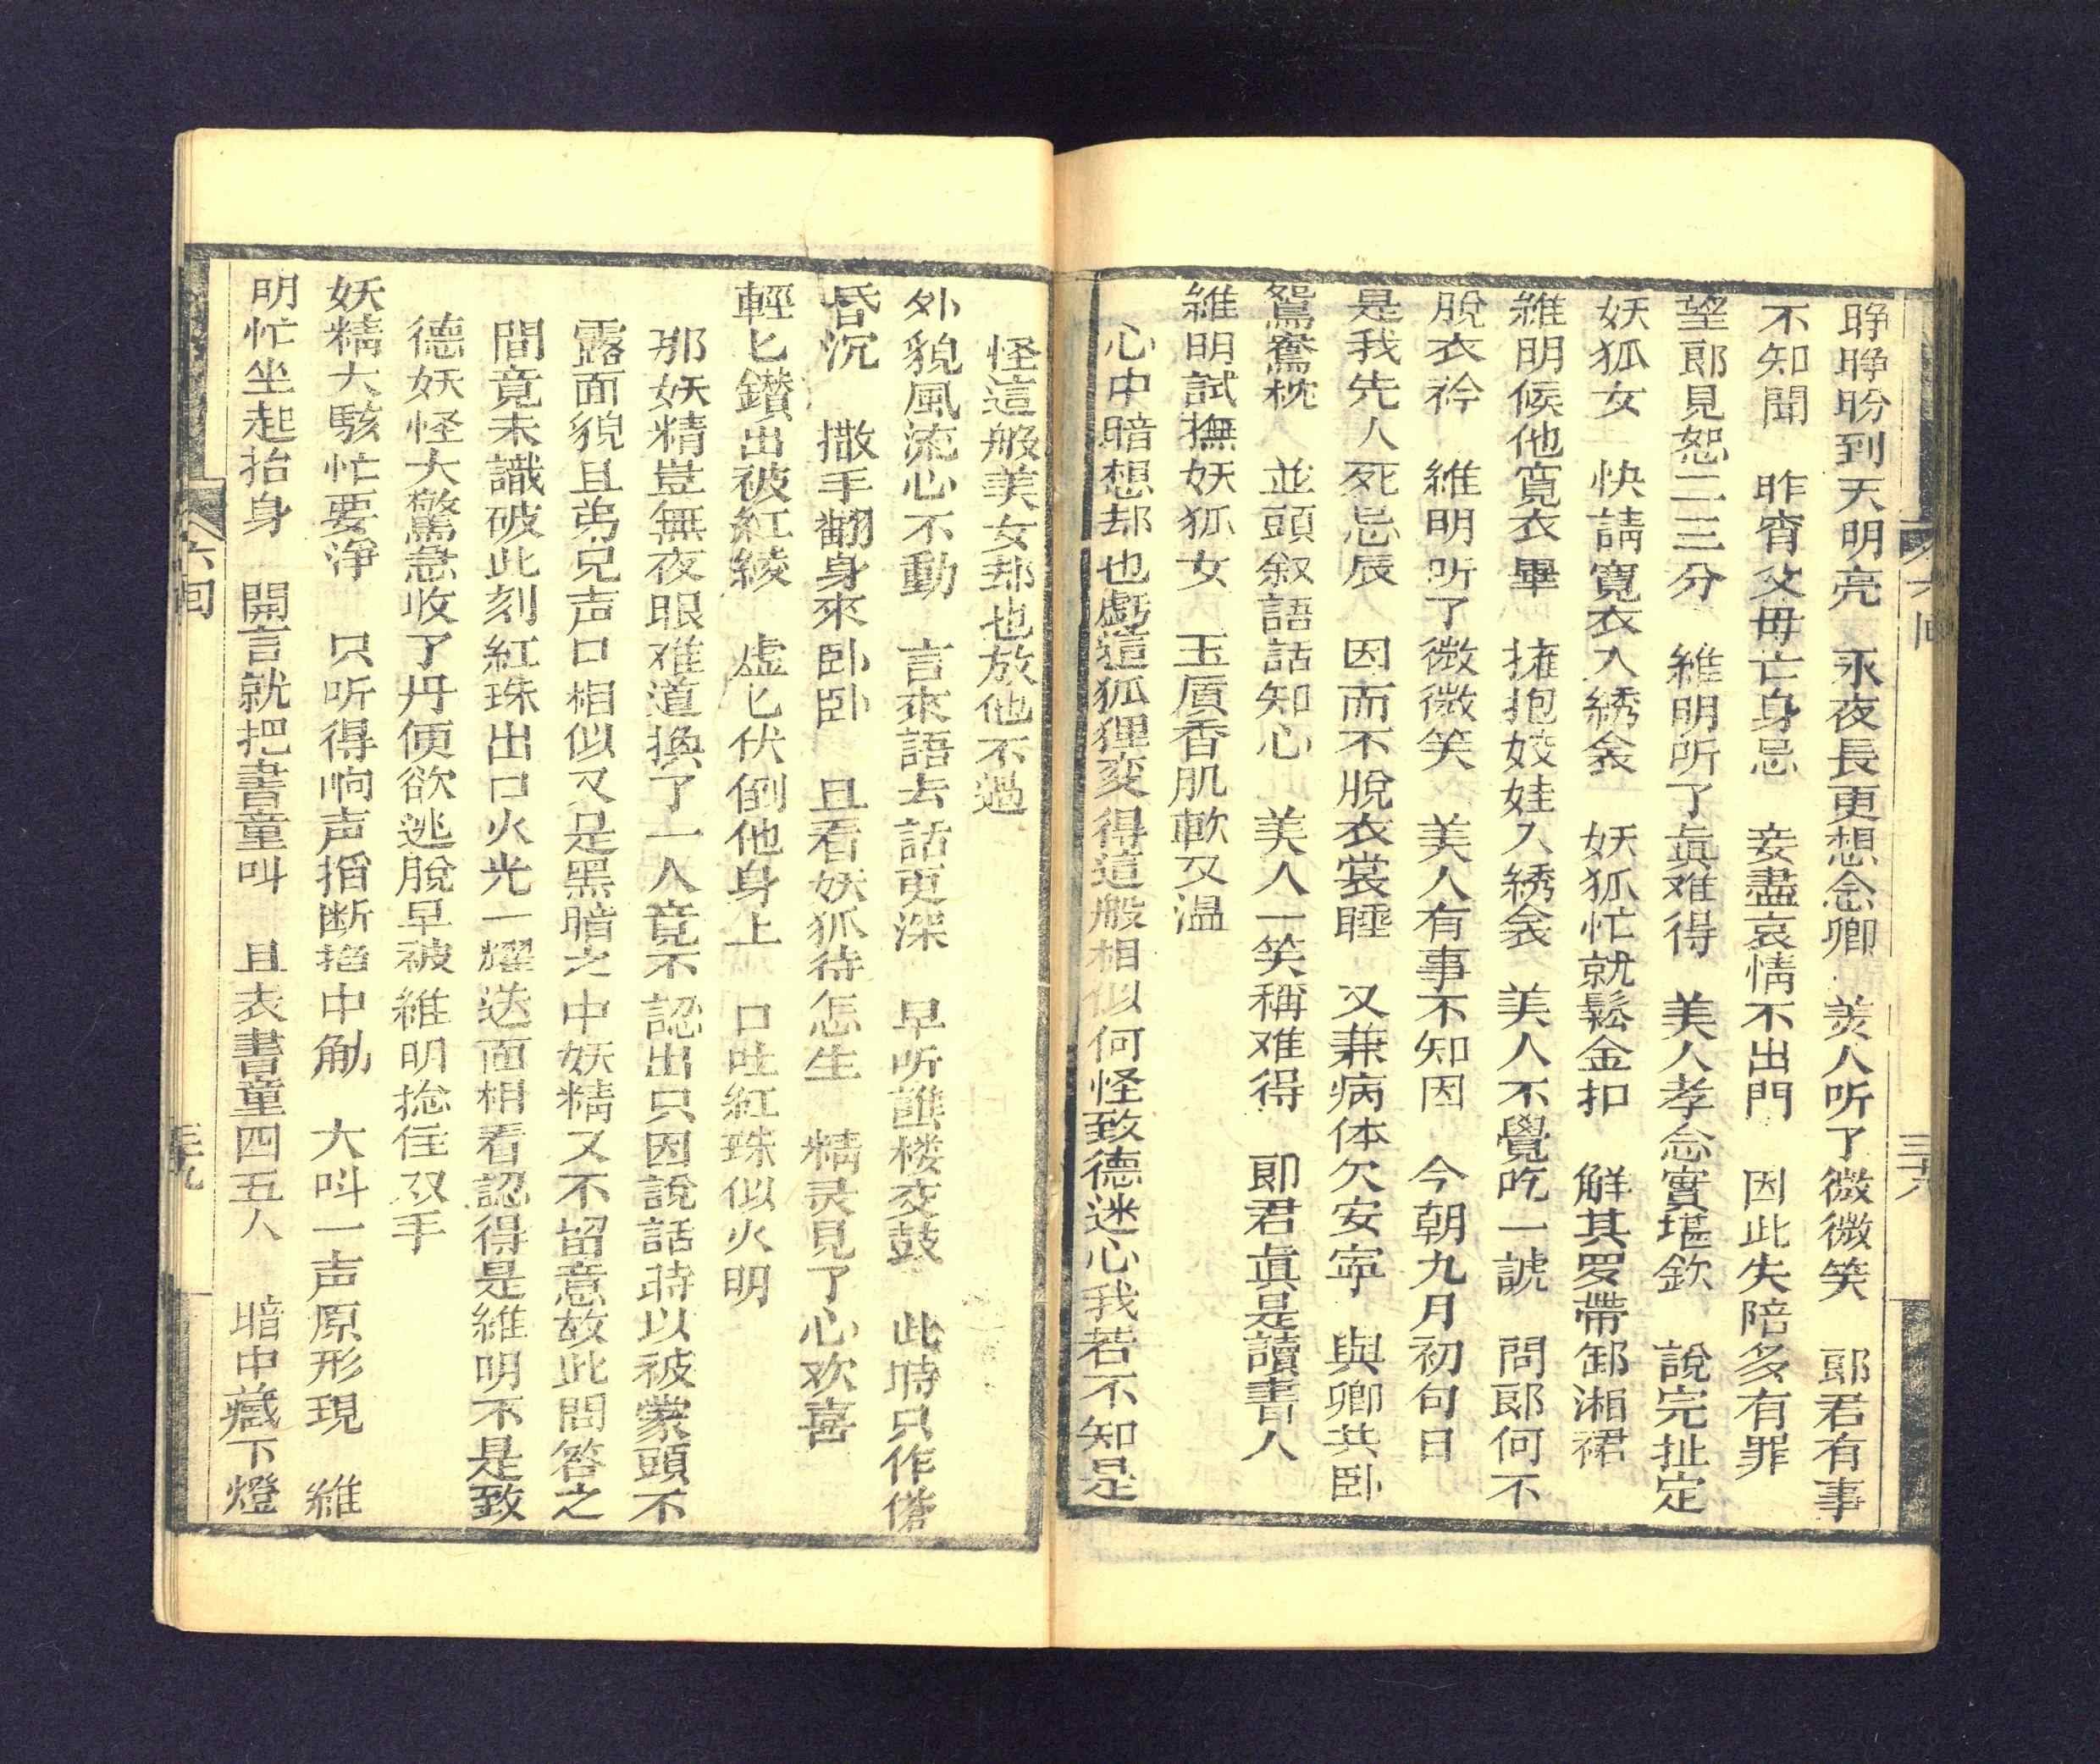 睜睜盼到天明亮　永夜長更想念卿　美人听了微微笑　郎君有事
不知聞　昨宵父毋亡身忌　妾盡哀情不出門　因此失陪多有罪
望郎見恕二三分　維明听了眞难得　美人孝念實堪欽　說完扯定
妖狐女　快請寬衣入綉衾　妖狐忙就鬆金扣　解其罗帶卸湘裙
維明候他寬衣畢　擁抱姣娃入綉衾　美人不覺吃一諕　問郎何不
脫衣衿　維明听了微微笑　美人有事不知因　今朝九月初旬日
是我先人死忌辰　因而不脫衣裳睡　又兼病体欠安寧　與卿共卧
鴛鴦枕　並頭叙語話知心　美人一笑稱难得　郎君眞是讀書人
維明試撫妖狐女　玉質香肌軟又温
心中暗想却也虧這狐狸变得這般相似何怪致德迷心我若不知是
六回
三十八
怪這般美女却也放他不過
外貌風流心不動　言來語去話更深　早听譙楼交鼓　此時只作倦
昏沉　撒手翻身來卧卧　且看妖狐待怎生　精灵見了心欢喜
輕匕鑚出被紅綾　虚匕伏倒他身上　口吐紅珠似火明
那妖精豈無夜眼难道換了一人竟不認出只因說話時以被蒙頭不
露面貌且弟兄声口相似又是黑暗之中妖精又不留意故此問答之
間竟未識破此刻紅珠出口火光一耀送面相看認得是維明不是致
德妖怪大驚急收了丹便欲逃脫早被維明捻住双手
妖精大駭忙要淨　只听得响声搯断搯中觔　大叫一声原形現　維
明忙坐起抬身　開言就把書童叫　且表書童四五人　暗中藏下燈
六回
三十九